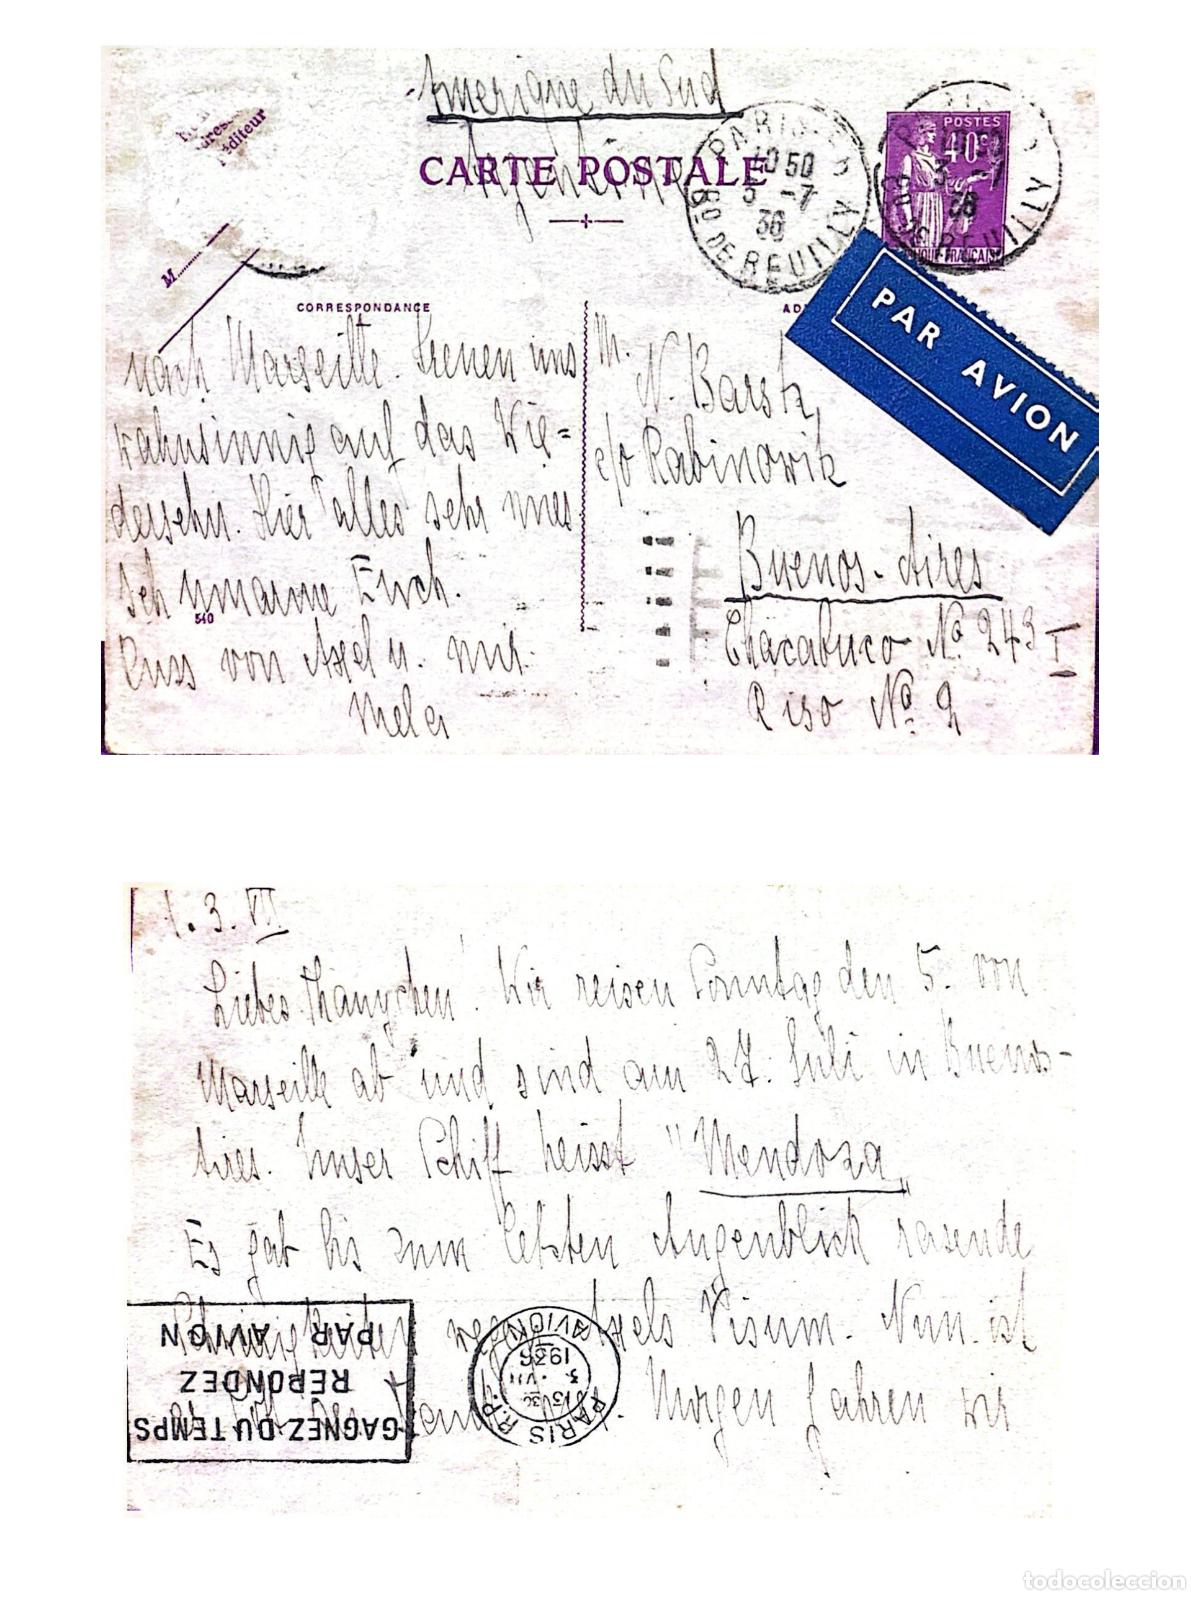 Amerique du Sud
Argentine
CARTE POSTALE
éditeur
M
PARIS
10 50
3 -7
36
Bd DE REUILLY
POSTES
40c
3 -7
36
REUILLY
FRANÇAISE
PAR AVION
CORRESPONDANCE
nach Marseille. Freuen uns
wahnsinnig auf das Wie=
dersehn. Hier alles sehr mies
Ich umarme Euch.
540
von Axel u. mir.
M. N. Barstz,
c/o Rabinowik
Buenos-Aires
Chacabuco No 243 I
Piso No. 2
3. VII
Liebes Hänschen! Wir reisen Sonntag den 5. von
Marseille ab und sind am 27. Juli in Buenos-
Aires. Unser Schiff heisst "Mendoza"
Es gab bis zum letzten Augenblick rasende
Schwierigkeiten wegen Axels Visum. Nun ist
Morgen fahren wir
GAGNEZ DU TEMPS
REPONDEZ
PAR AVION
PARIS R.P. AVION
3 VII
1936
todocoleccion